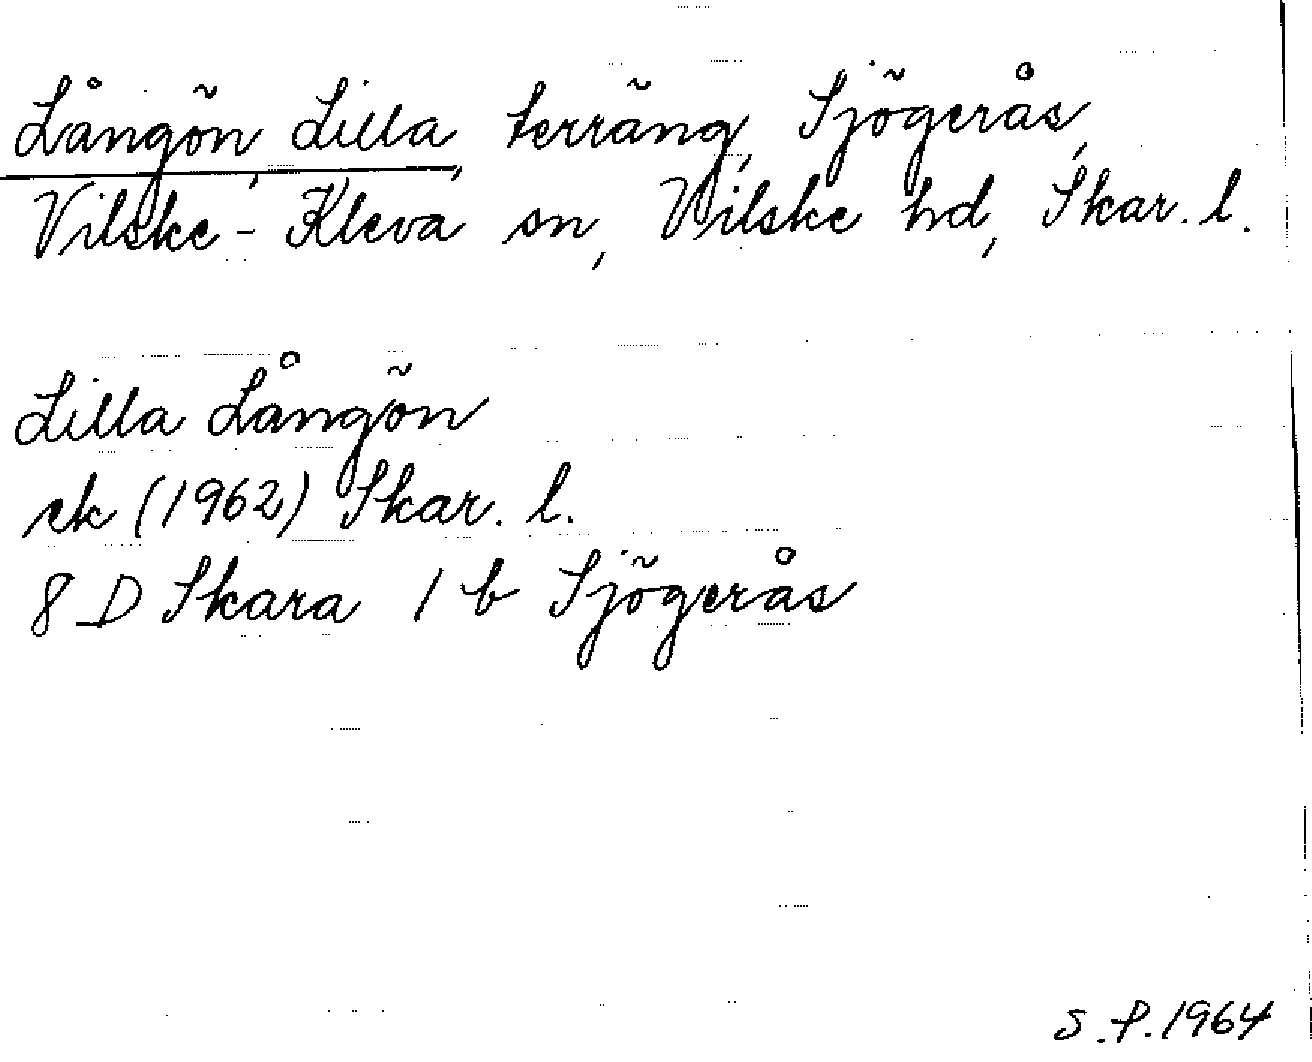 Långön, Lilla, terräng, Sjögerås,
Vilske-Kleva sn, Vilske hd, Skar. l.
Lilla Långön
ek (1962) Skar. l.
8 D Skara 1 b Sjögerås
S.P. 1964